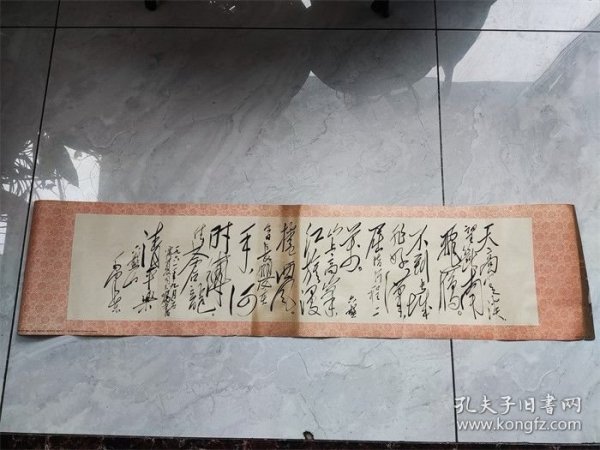 天高云淡
望断南
飞雁
不到长城
非好汉
屈指行程二
万 六盘
山上高峰
红旗漫
捲西风
今日长缨在
手 何
时缚
住苍龙
一九六一年九月
清平乐
六盘山
毛泽东
孔夫子旧书网
www.kongfz.com